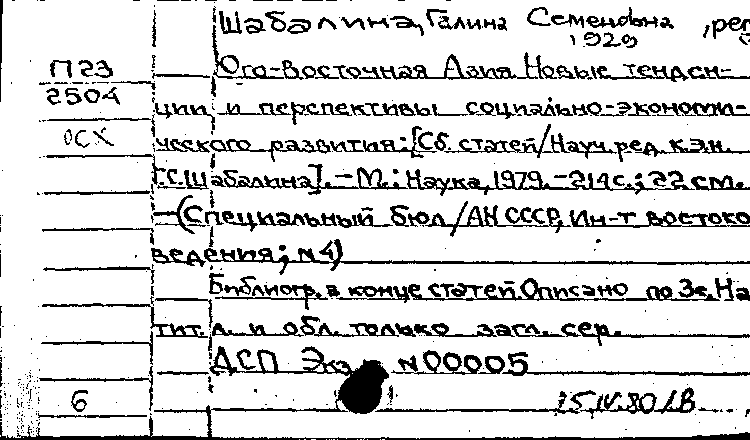 Шабалина, Галина Семеновна, ред
1929
П23
2504
ОСХ
Юго-Восточная Азия. Новые тенден-
ции и перспективы социально-экономи-
ческого развития: [Сб. статей/Науч. ред. к.э.н.
Г.С. Шабалина]. – М.: Наука, 1979. – 214 с.; 22 см.
– (Специальный бюл/АН СССР, Ин-т востоко
ведения; N 4)
Библиогр. в конце статей. Описано по 3 с. На
тит. л. и обл. только загл. сер.
ДСП Экз N 00005
6